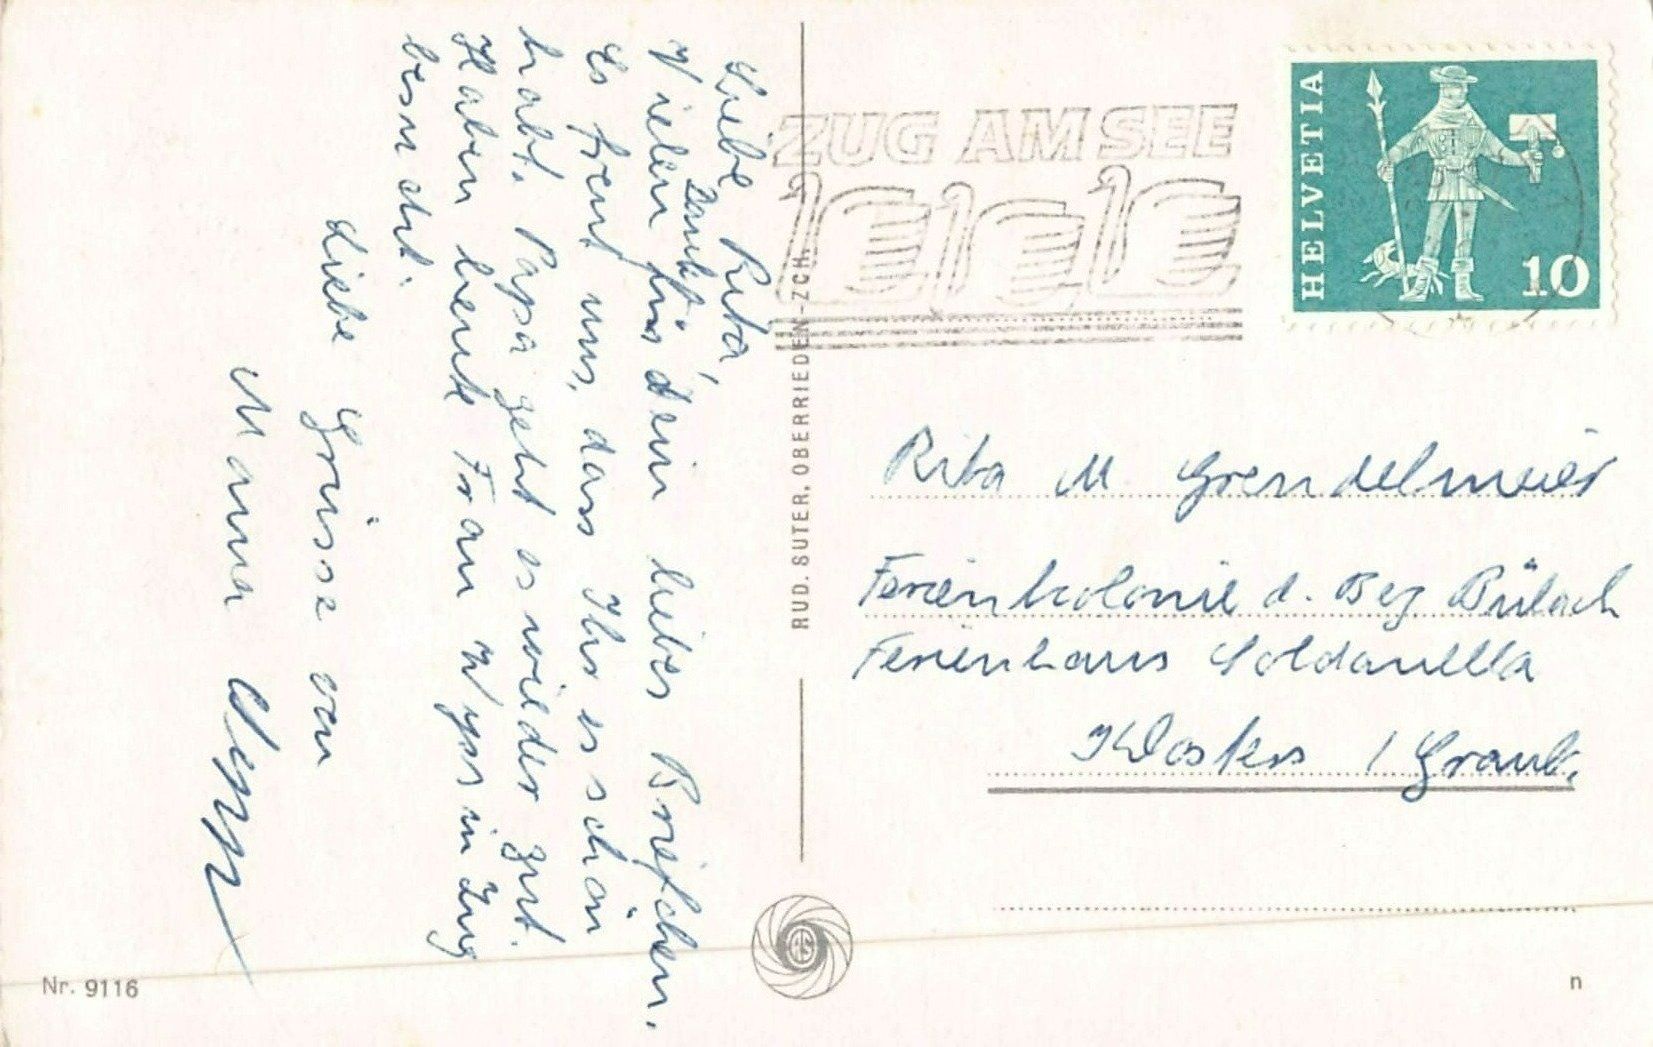 Liebe Rita,
Vielen Dank für dein liebes Briefchen.
Es freut uns, dass Ihr es schön
habt. Papa geht es wieder gut.
Haben heute Frau Wyss in Zug
besucht.
Liebe Grüsse von
Mama
ZUG AM SEE
HELVETIA
10
RUD. SUTER, OBERRIEDEN-ZCH.
Rita M Grendelmeier
Ferienkolonie d. Bez Bülach
Ferienhaus Soldanella
Klosters / Graub.
Nr. 9116
n